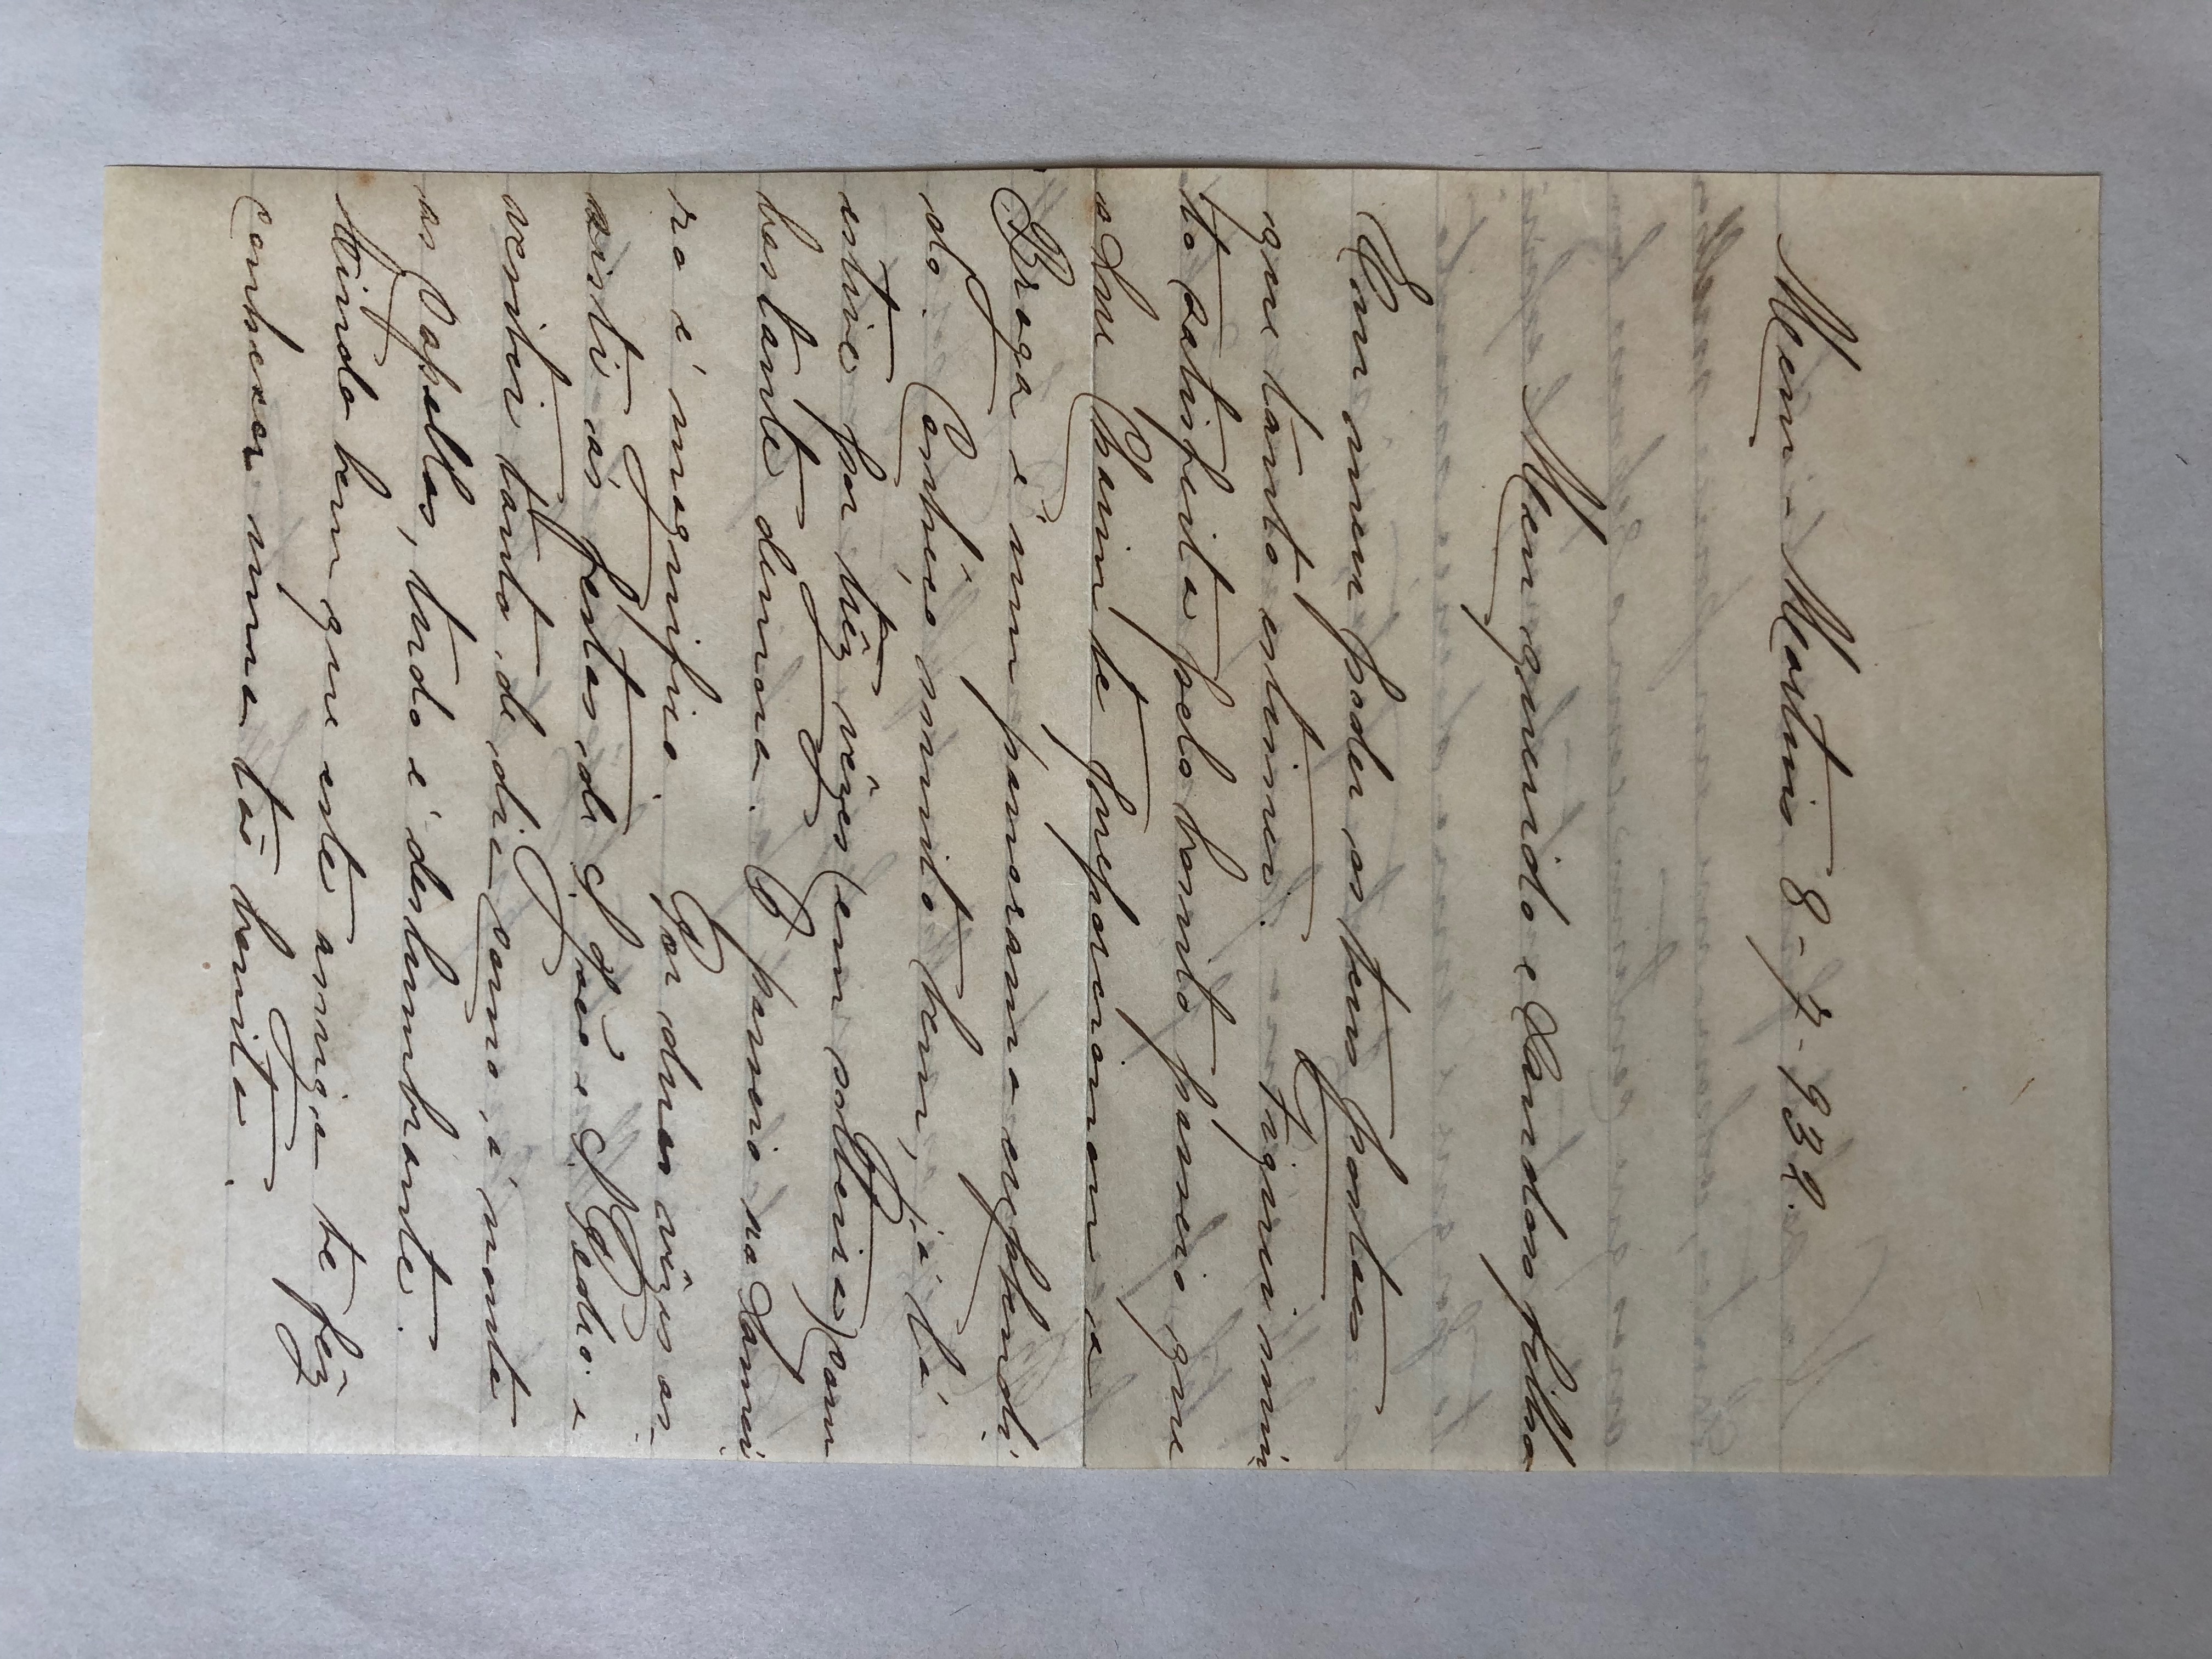 Mem-Martins 8-7-932.
Meu querido e saudoso filho
Em meu poder os teus postaes
que tanto estimei. Fiquei mui-
to satisfeita pelo bonito passeio que
o Snr Chaim te preporcionou a
Braga é um panorama explendi-
do. Conhêço muito bem, já lá
estive por trêz vêzes (em solteira) com
bastante demora. O passeio na Lamei-
ra é magnifico. Por duas vêzes as-
sisti ás festas de S. João e S. Pedro e
vesitei tanto de dia como á noute
as Capellas, tudo é deslumbrante.
Ainda bem que este amigo te fêz
conhecer uma tão bonita.